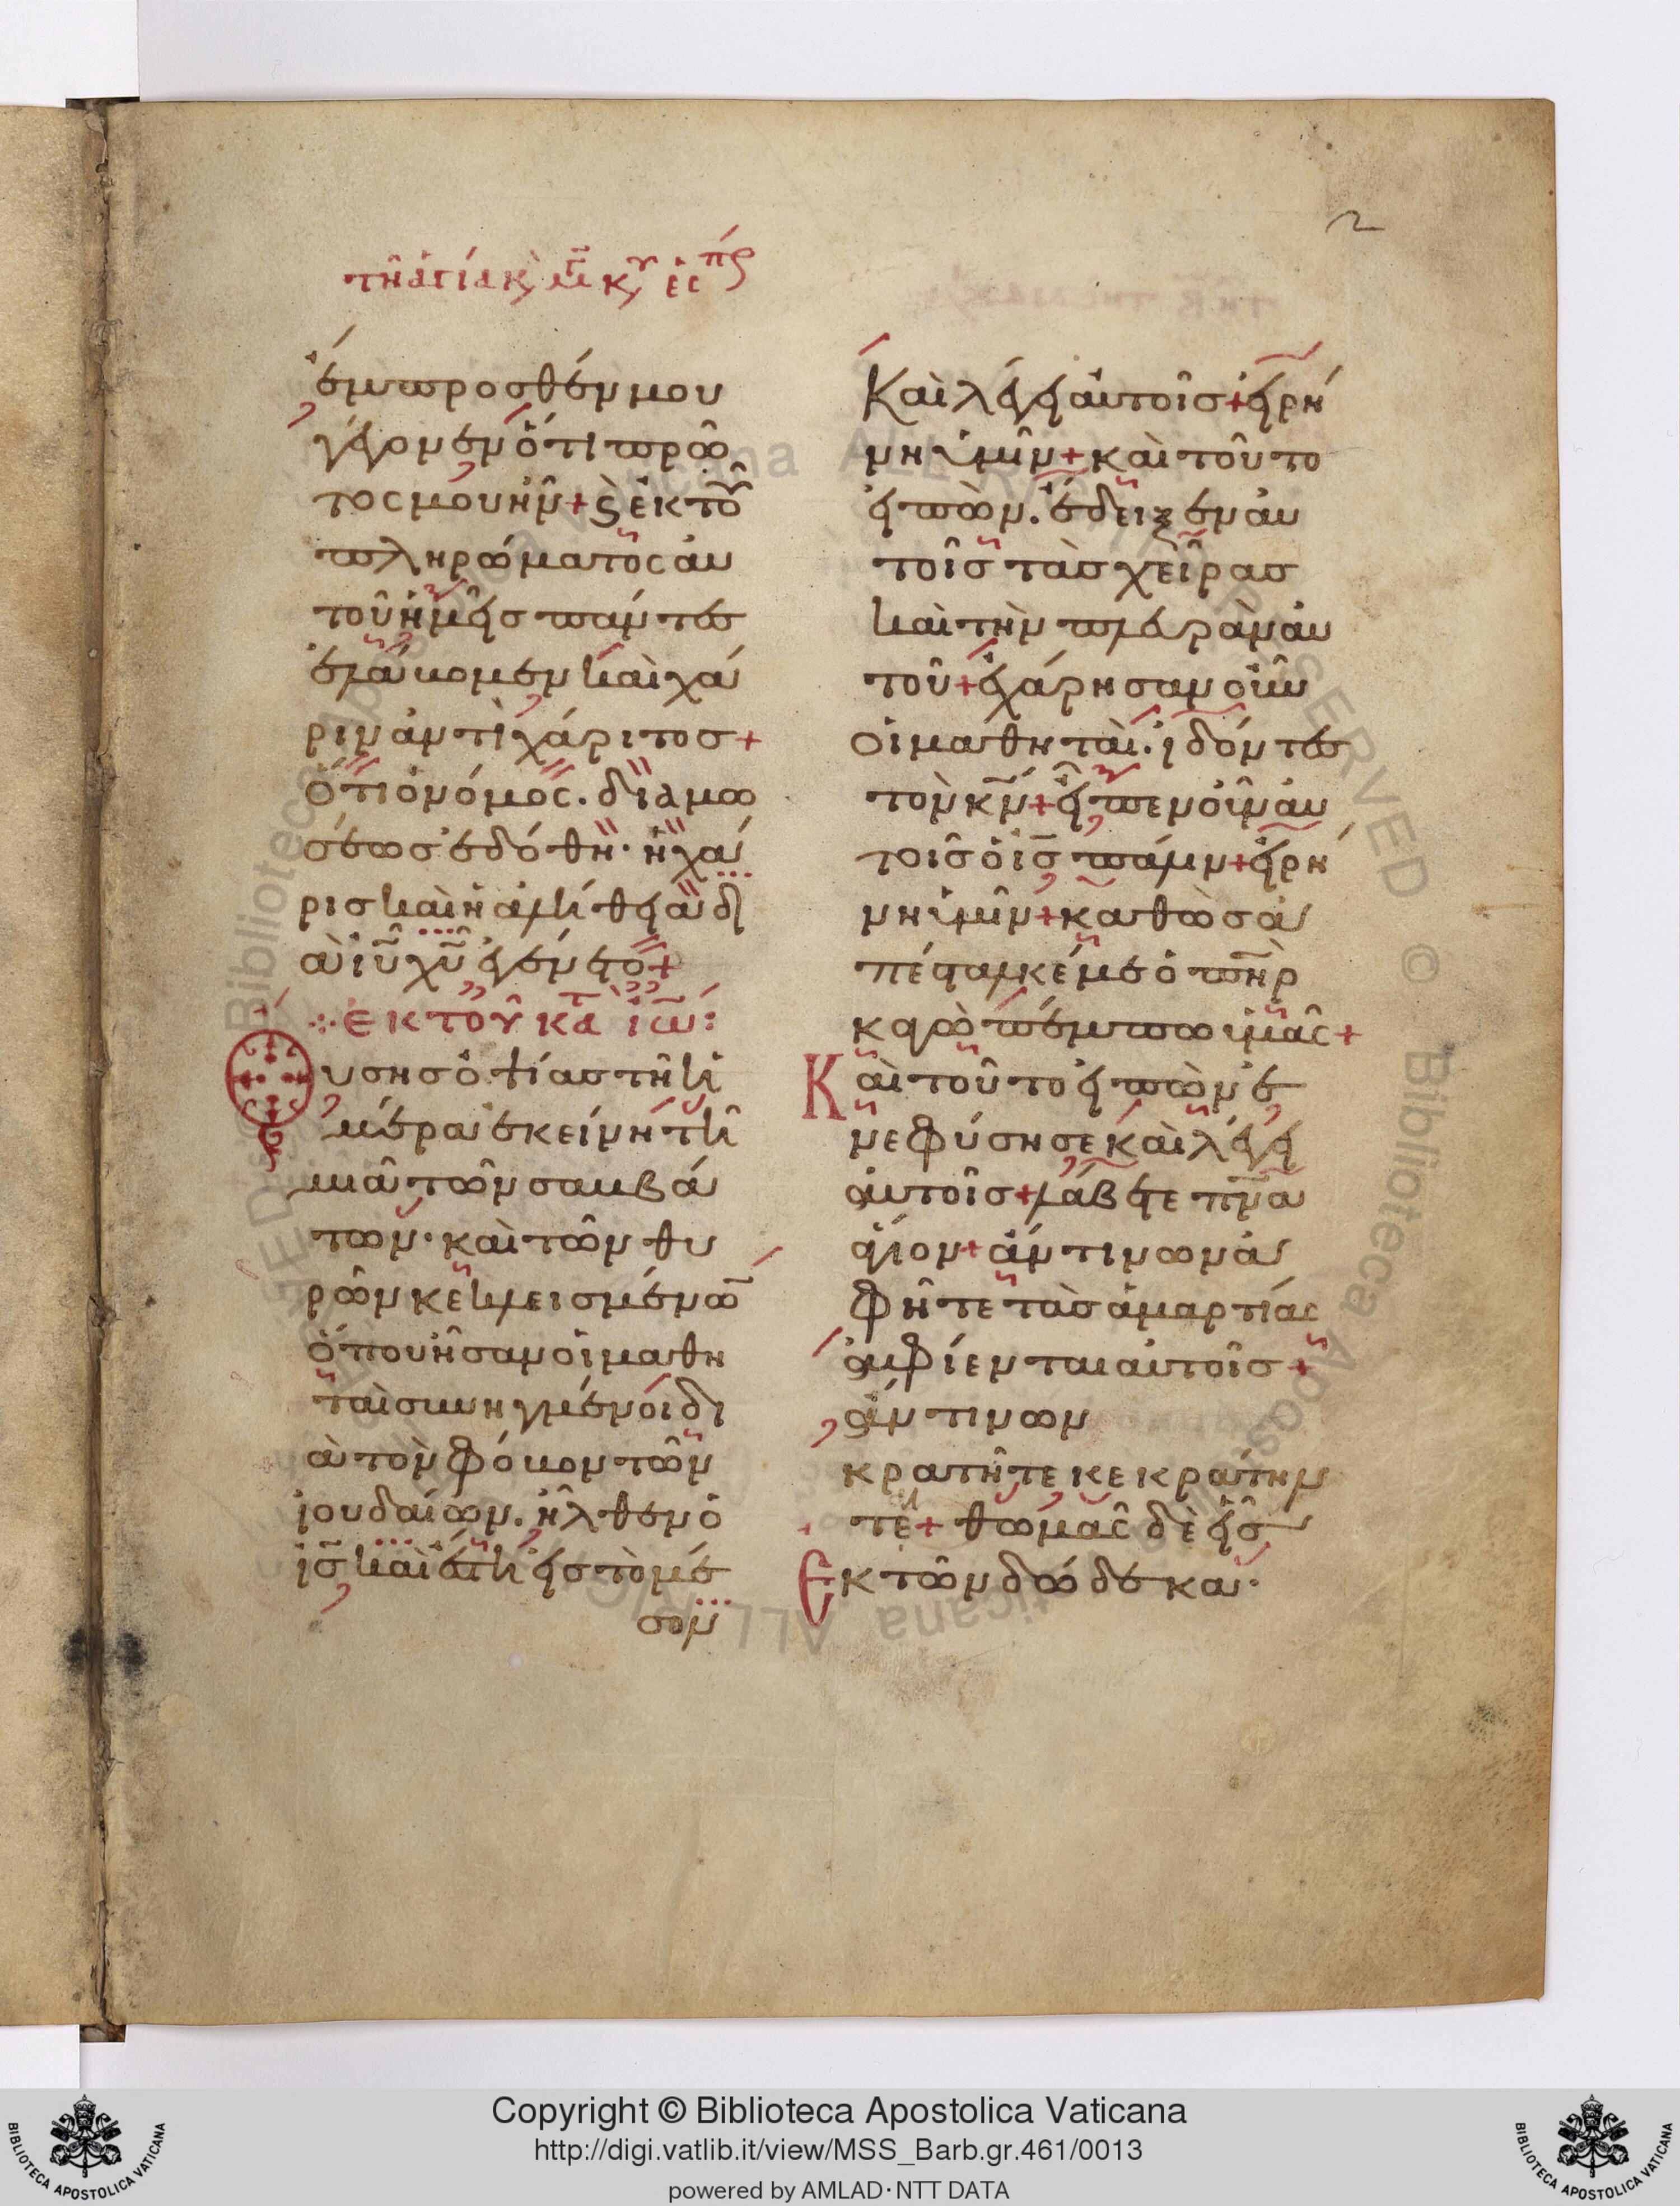 2
τῆ ἁγίᾳ κ, μεγ κυ εἰς
ἔμπροσθέν μου
γέγονεν ὅτι πρῶ
τος μου ἦν + ϛ ἐκ τοῦ
πληρώματος αὐ
τοῦ ἡμεῖς πάντες
ἐλάβομεν καὶ χά
ριν ἀντὶ χάριτος +
ὅτι ὁ νόμος. διὰ μω
σέως ἐδόθη· ἡ χά
ρις καὶ ἡ ἀλήθεια δι
ὰ ἰῦ χῦ ἐγένετο +
ἐκ τοῦ κατ ἰω:
Οὔσης ὀψίας τῆ ἡ
μέρα ἐκείνη τῆ
μιᾶ τῶν σαμβά
των· καὶ τῶν θυ
ρῶν κεκλεισμένω
ὅπου ἦσαν οἱ μαθη
ταὶ συνηγμένοι δι
ὰ τὸν φόβον τῶν
ἰουδαίων. ἦλθεν ὁ
ις καὶ ἔστη εἰς τὸ μέ
σον
Καὶ λέγει αὐτοῖς + εἰρή
νη ὑμῖν + καὶ τοῦτο
εἰπὼν. ἔδειξεν αὐ
τοῖς τὰς χεῖρας
καὶ τὴν πλευρὰν αὐ
τοῦ + ἐχάρησαν οὖν
οἱ μαθηταὶ. ἰδόντες
τὸν κν + εἶπεν οὖν αὐ
τοῖς ὁ ις πάλιν + εἰρή
νη ὑμῖν + καθὼς ἀ
πέσταλκέν με ὁ πηρ
κἀγὼ πέμπω ὑμᾶς +
Καὶ τοῦτο εἰπὼν ἐ
νεφύσησε καὶ λέγει
αὐτοῖς + λάβετε πνα
ἅγιον + ἄν τινων ἀ
φῆτε τὰς ἁμαρτίας
ἀφίενται αὐτοῖς +
ἄν τινων
κρατῆτε κεκράτην
ται + θωμᾶς δὲ εἷς
Ἐκ τῶν δώδεκα·
Copyright © Biblioteca Apostolica Vaticana
http://digi.vatlib.it/view/MSS_Barb.gr.461/0013
powered by AMLAD·NTT DATA
BIBLIOTECA APOSTOLICA VATICANA
BIBLIOTECA APOSTOLICA VATICANA